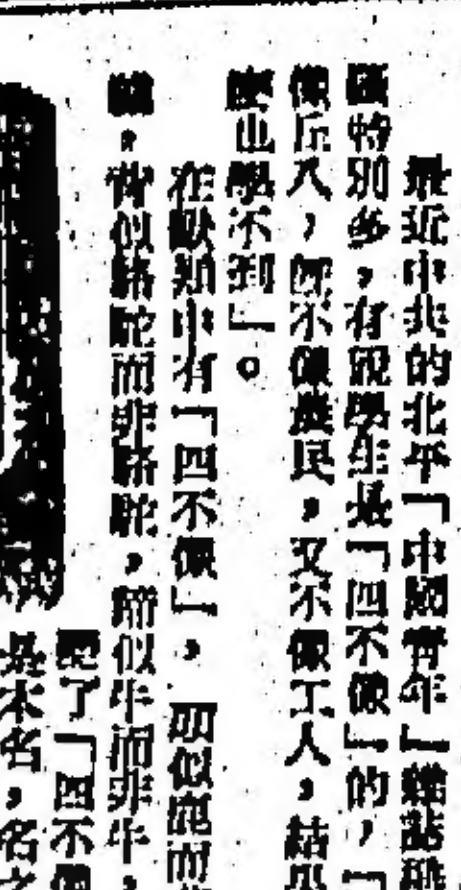 最近中共的北平「中國青年」雜誌
特別多,有說學生是「四不像」的,「
像丘八,既不像農民,又不像工人,結果
麼也學不到」。
在獸類中有「四不像」,頭似鹿而
,背似駱駝而非駱駝,蹄似牛而非牛,
了「四不像
是本名,名之